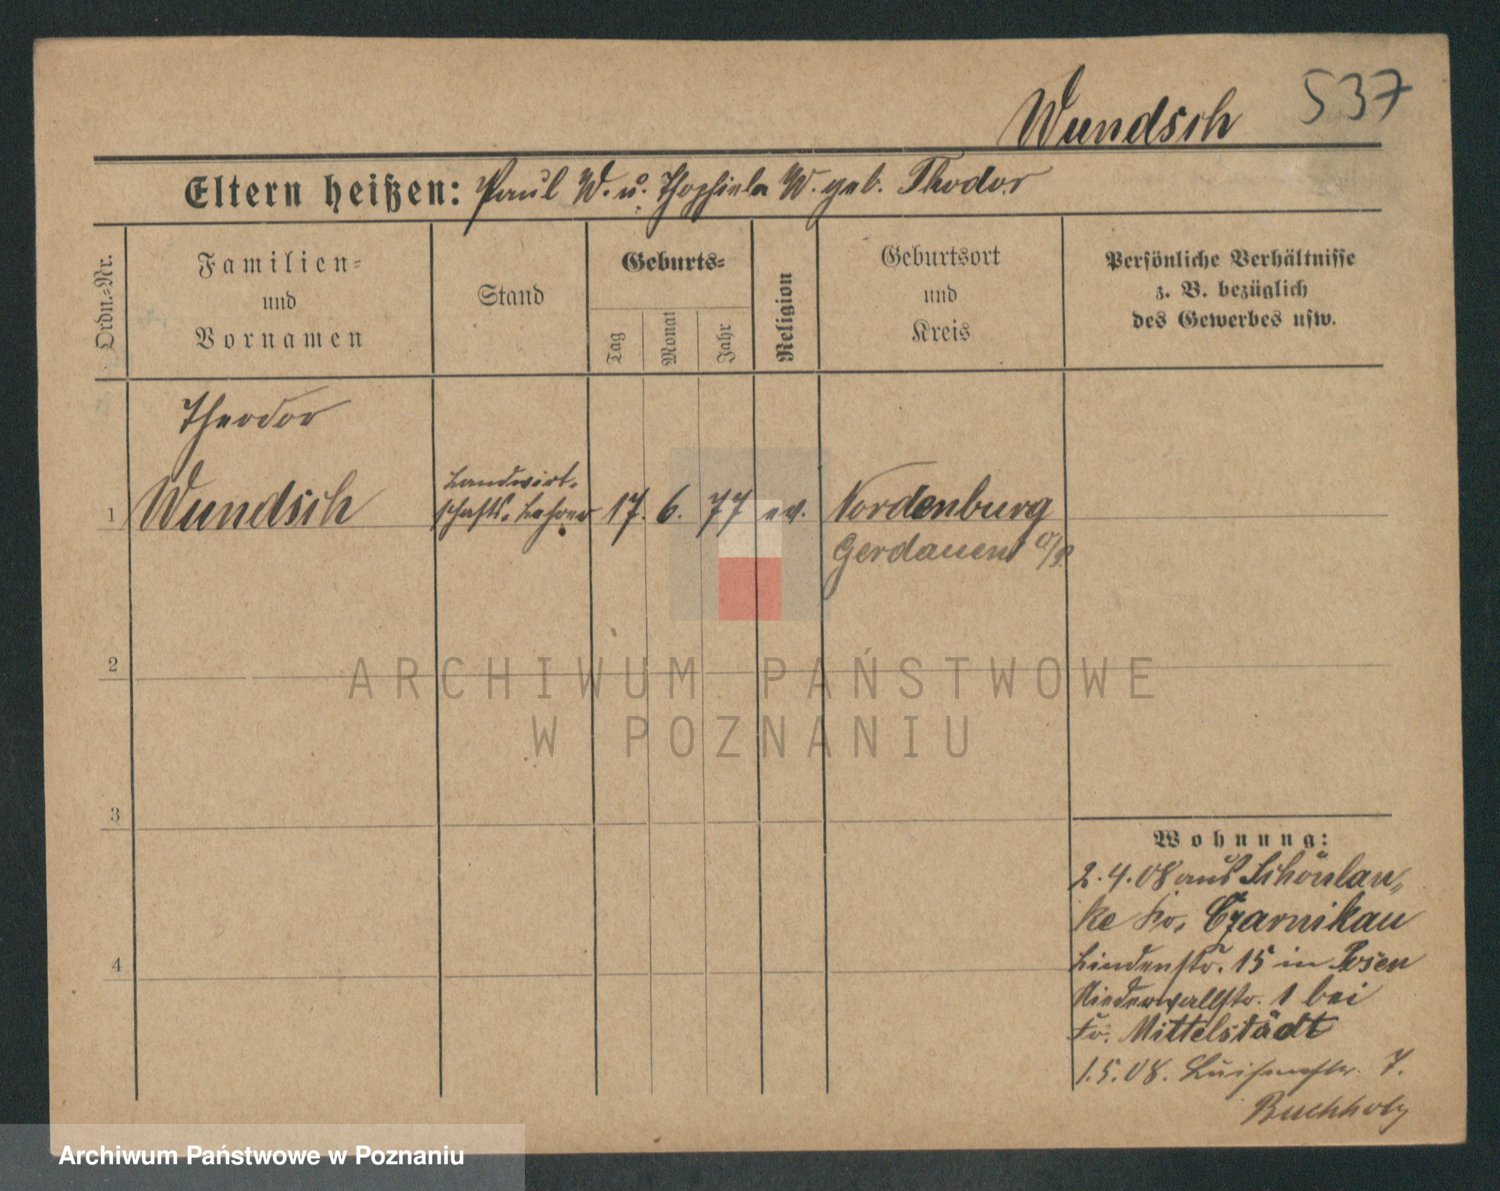 Wundsch 537
Eltern heißen: Paul W. u. Thophiela W. geb. Thodor
Ordn.-Nr.
Familien-
und
Vornamen
Stand
Geburts-
Tag
Monat
Jahr
Religion
Geburtsort
und
Kreis
Persönliche Verhältnisse
z. B. bezüglich
des Gewerbes usw.
Theodor
Landwirt-
1 Wundsch schafts-Lehrer 17. 6. 77 ev. Nordenburg
Gerdauen
2
ARCHIWUM PAŃSTWOWE
W POZNANIU
3
Wohnung:
2.4.08 aus Schönlan-
ke Kr. Czarnikau
4
Lindenstr. 15 in Posen
Niederwallstr. 1 bei
Fr. Mittelstädt
1.5.08. Luisenstr. 7.
Buchholz
Archiwum Państwowe w Poznaniu